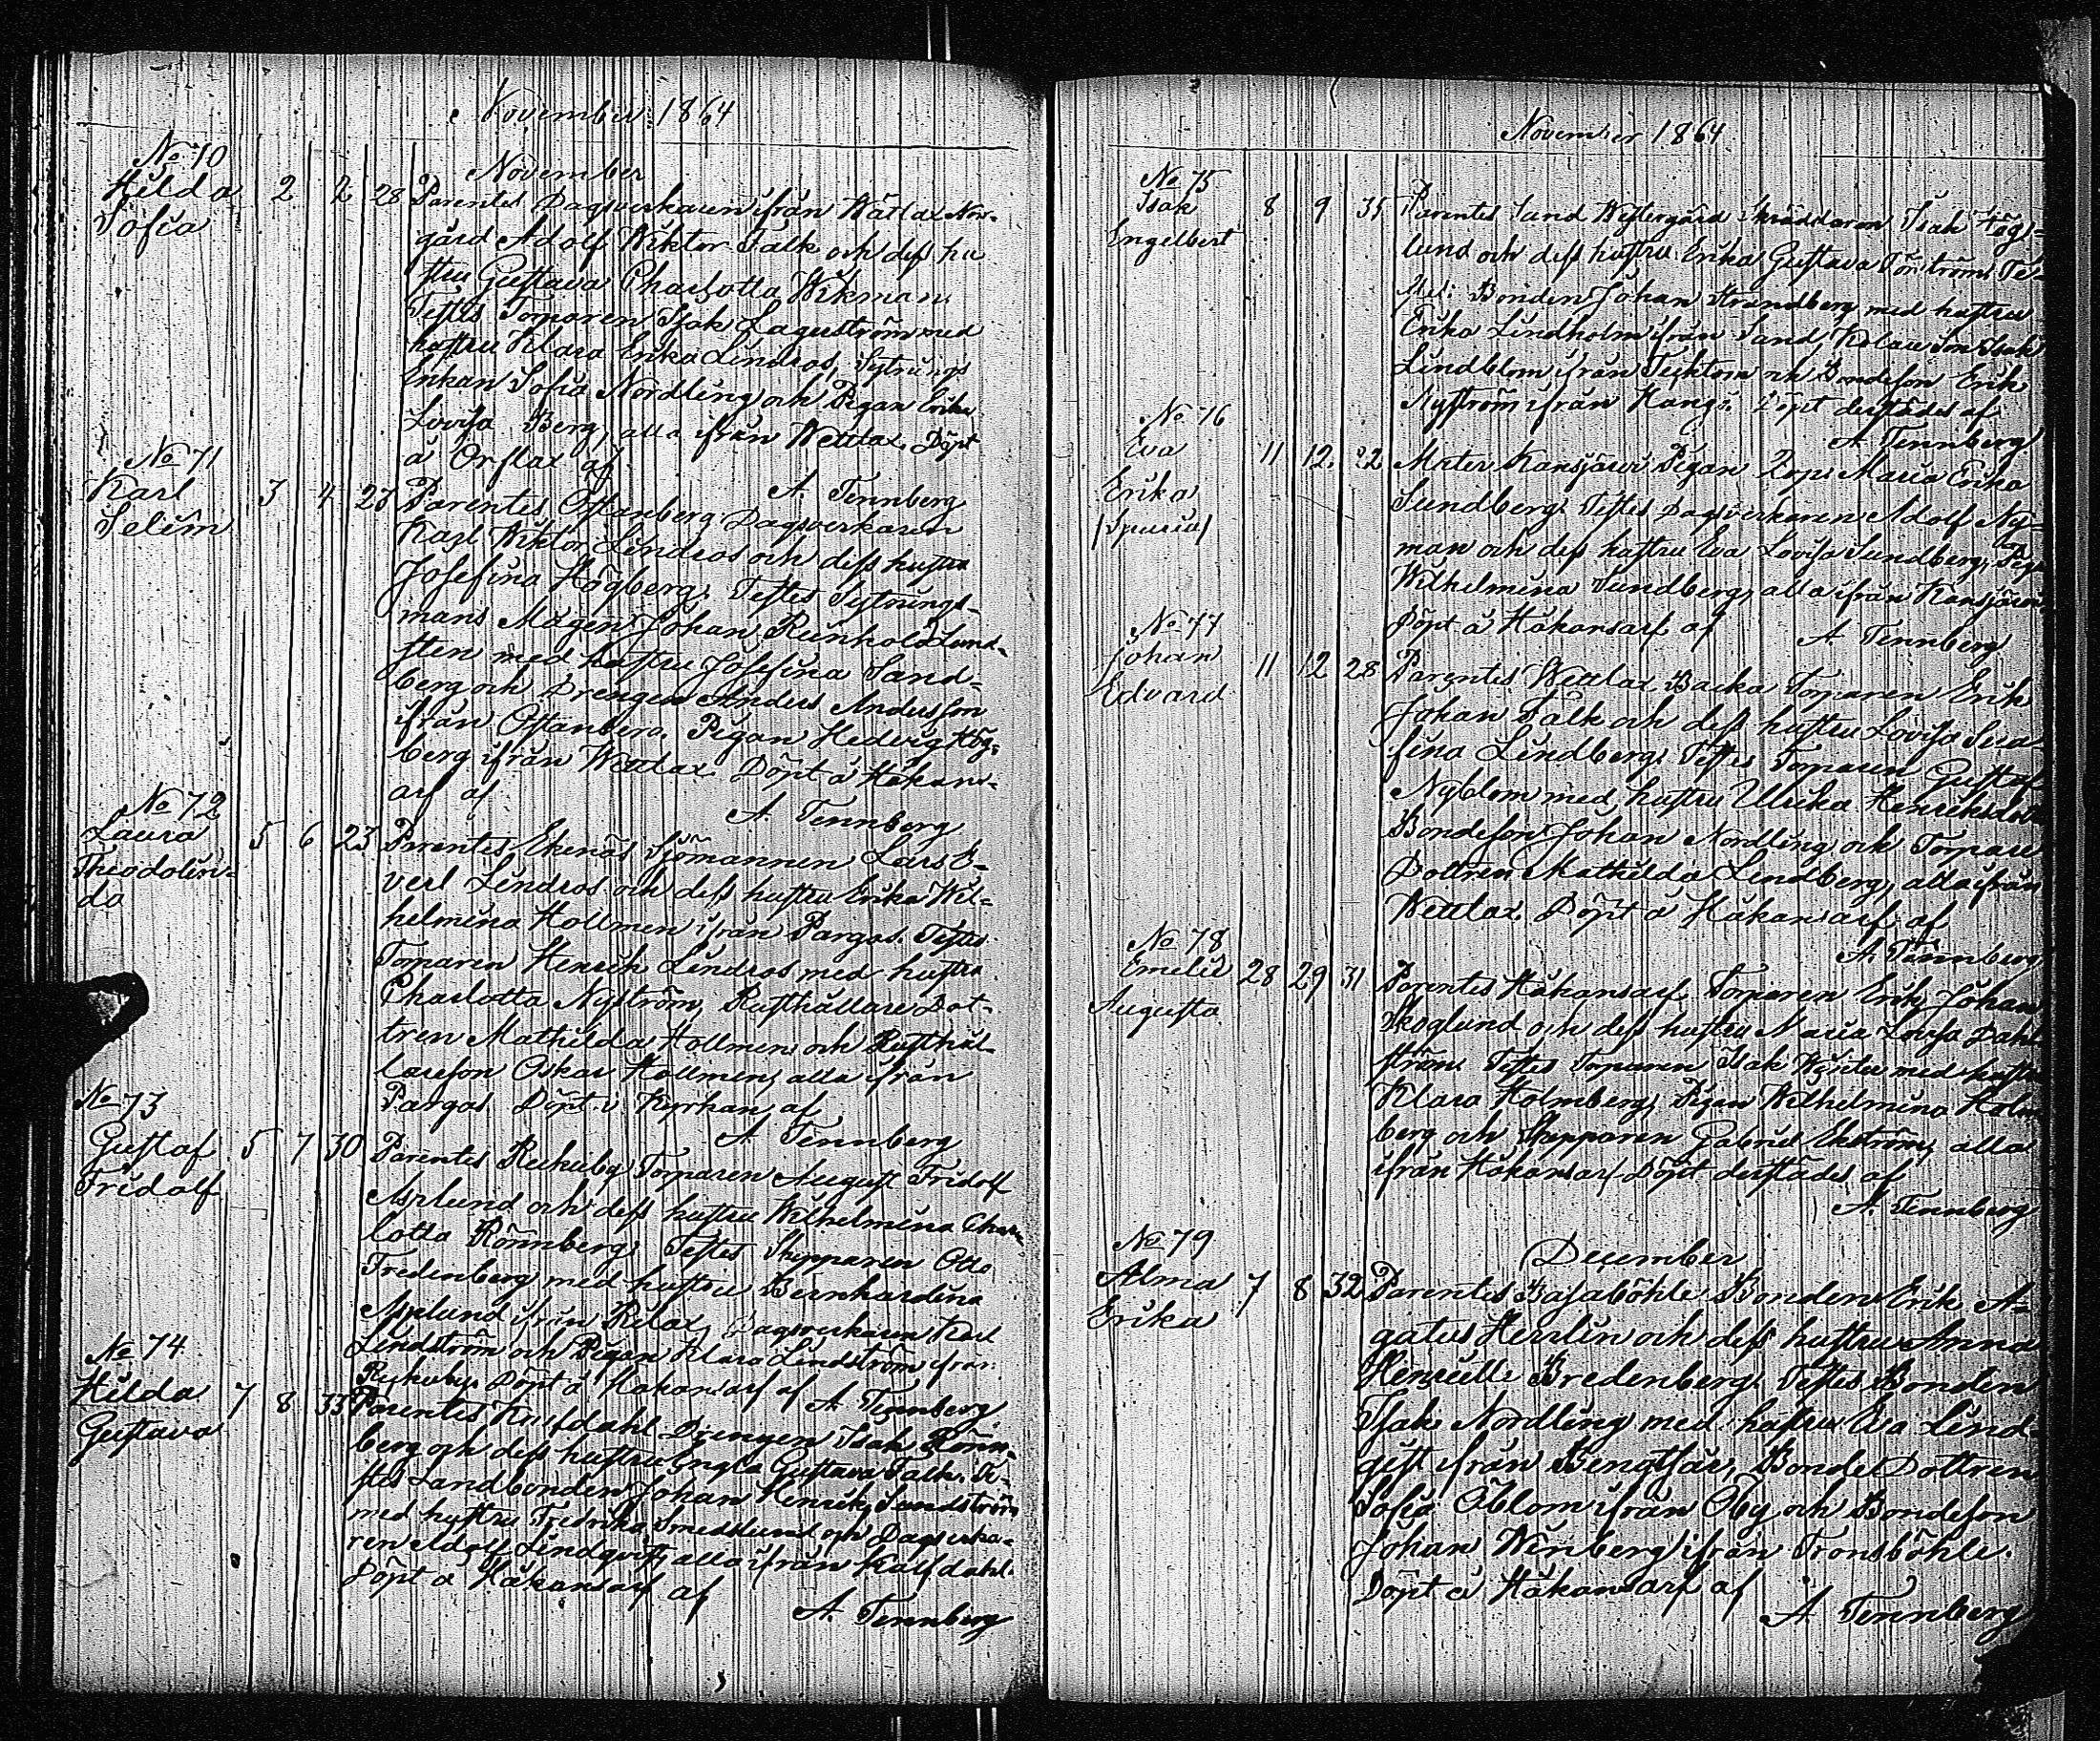 November 1864
November
No 70
Hilda 2 2 28 Parentes Dagsverkaren ifrån Wätlax Nor-
Sofia
gård Adolf Wiktor Falk och dess hu
stru Gustava Charlotta Wikman.
Testes Torparen Isak Lagerström med
hustru Klara Erika Lindros, Sytnings
Enkan Sofia Nordling och Pigan Erika
Lovisa Berg, alla ifrån Wettlax. Döpt
å Orslax af
A. Tennberg
No 71
Karl 3 4 23 Parentes Ostanberg Dagsverkaren
Selim
Karl Wiktor Lindros och dess hustru
Josefina Högberg. Testes Sytnings-
mans Mågen Johan Reinhold Lund-
sten med hustru Josefina Sand-
berg och Drengen Anders Andersson
ifrån Ostanberg. Pigan Hedvig Hög-
berg ifrån Wettlax. Döpt å Håkans-
arf af
A. Tennberg
No 72
Laura 5 6 23 Parentes Ekenäs Sjömannen Lars E-
Theodolin-
da
verl Lindros och dess hustru Erika Wil-
helmina Hollmen ifrån Pargas. Testes
Torparen Henrik Lindros med hustru
Charlotta Nyström, Rusthållare Dot-
tren Mathilda Hollmen och Rusthål-
lareson Oskar Hollmen, alla ifrån
Pargas. Döpt i Kyrkan af
A. Tennberg
No 73
Gustaf 5 7 30 Parentes Rukuby Torparen August Fridolf
Fridolf
Asplund och dess hustru Wilhelmina Char-
lotta Rönnberg. Testes Skepparen Otto
Fredenberg med hustru Bernhardina
Asplund ifrån Kilax, Dagsverkaren Karl
Lindström och Pigan Klara Lindström ifrån
Rukuby. Döpt å Håkansarf af A. Tennberg
No 74
Hilda 7 8 33 Parentes Drengen Isak Rönn-
Gustava
berg och dess hustru Engla Gustava Falk. Te-
stes Landbonden Johan Henrik Sundström
med hustru Fredrika Smedslund och Dagsverka-
ren Adolf Lindqvist, alla ifrån Kalfdahl.
Döpt å Håkansarf af
A. Tennberg
November 1864
No 75
Isak 8 9 35 Parentes Sand Westergård Skräddaren Isak Hög-
Engelbert
lund och dess hustru Erika Gustava Törström. Te-
stes: Bonden Johan Strandberg med hustru
Erika Lindholm ifrån Sand, Isak
Lindblom ifrån Tecktom och Bondeson Erik
Nyström ifrån Hangö. Döpt derstädes af
A. Tennberg
No 76
Eva 11 12 22 Mater Kansjärvi Pigan Maria Erika
Erika
/Spuria/
Sundberg. Testes Dagsverkaren Adolf Ny-
man och dess hustru Eva Lovisa Sundberg, Pigan
Wilhelmina Sundberg, alla ifrån Kansjärvi
Döpt å Håkansarf af A. Tennberg
No 77
Johan 11 12 28 Parentes Wettlax Backa Torparen Erik
Edvard
Johan Falk och dess hustru Lovisa Sera-
fina Lindberg. Testes Torparen Gustaf
Nyblom med hustru Ulrika Henriksdotter
Bondeson Johan Nordling och Torpare
Dottren Mathilda Lindberg, alla ifrån
Wettlax. Döpt å Håkansarf af
A. Tennberg
No 78
Emelie 28 29 31 Parentes Håkansarf Torparen Erik Johan
Augusta
Skoglund och dess hustru Maria Lovisa Dahl-
ström. Testes Torparen Isak Wester med hustru
Klara Holmberg, Pigan Wilhelmina Holm-
berg och Skepparen Gabriel Ekström, alla
ifrån Håkansarf. Döpt derstädes af
A. Tennberg
December
No 79
Alma 7 8 32 Parentes Basaböhle Bonden Erik A-
Erika
gatus Herrlin och dess hustru Anna
Bredenberg. Testes Bonden
Isak Nordling med hustru Eva Lind-
qist ifrån Bengtsår, Bonde Dottren
Sofia Öblom ifrån Öby och Bondeson
Johan Winberg ifrån Tronsböhle.
Döpt å Håkansarf af
A Tennberg